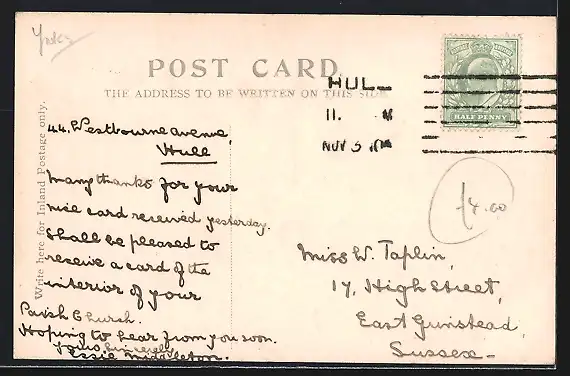 Yorks
POST CARD
THE ADDRESS TO BE WRITTEN ON THIS SIDE
Write here for Inland Postage only.
HULL
11. M
NOV 5
HALF PENNY
44. Westbourne Avenue,
Hull
Many thanks for your
nice card received yesterday.
Shall be pleased to
receive a card of the
interior of your
Parish Church.
Hoping to hear from you soon.
Yours sincerely
Essie Middleton.
£4.00
Miss W. Taplin,
17, High Street,
East Grinstead,
Sussex-